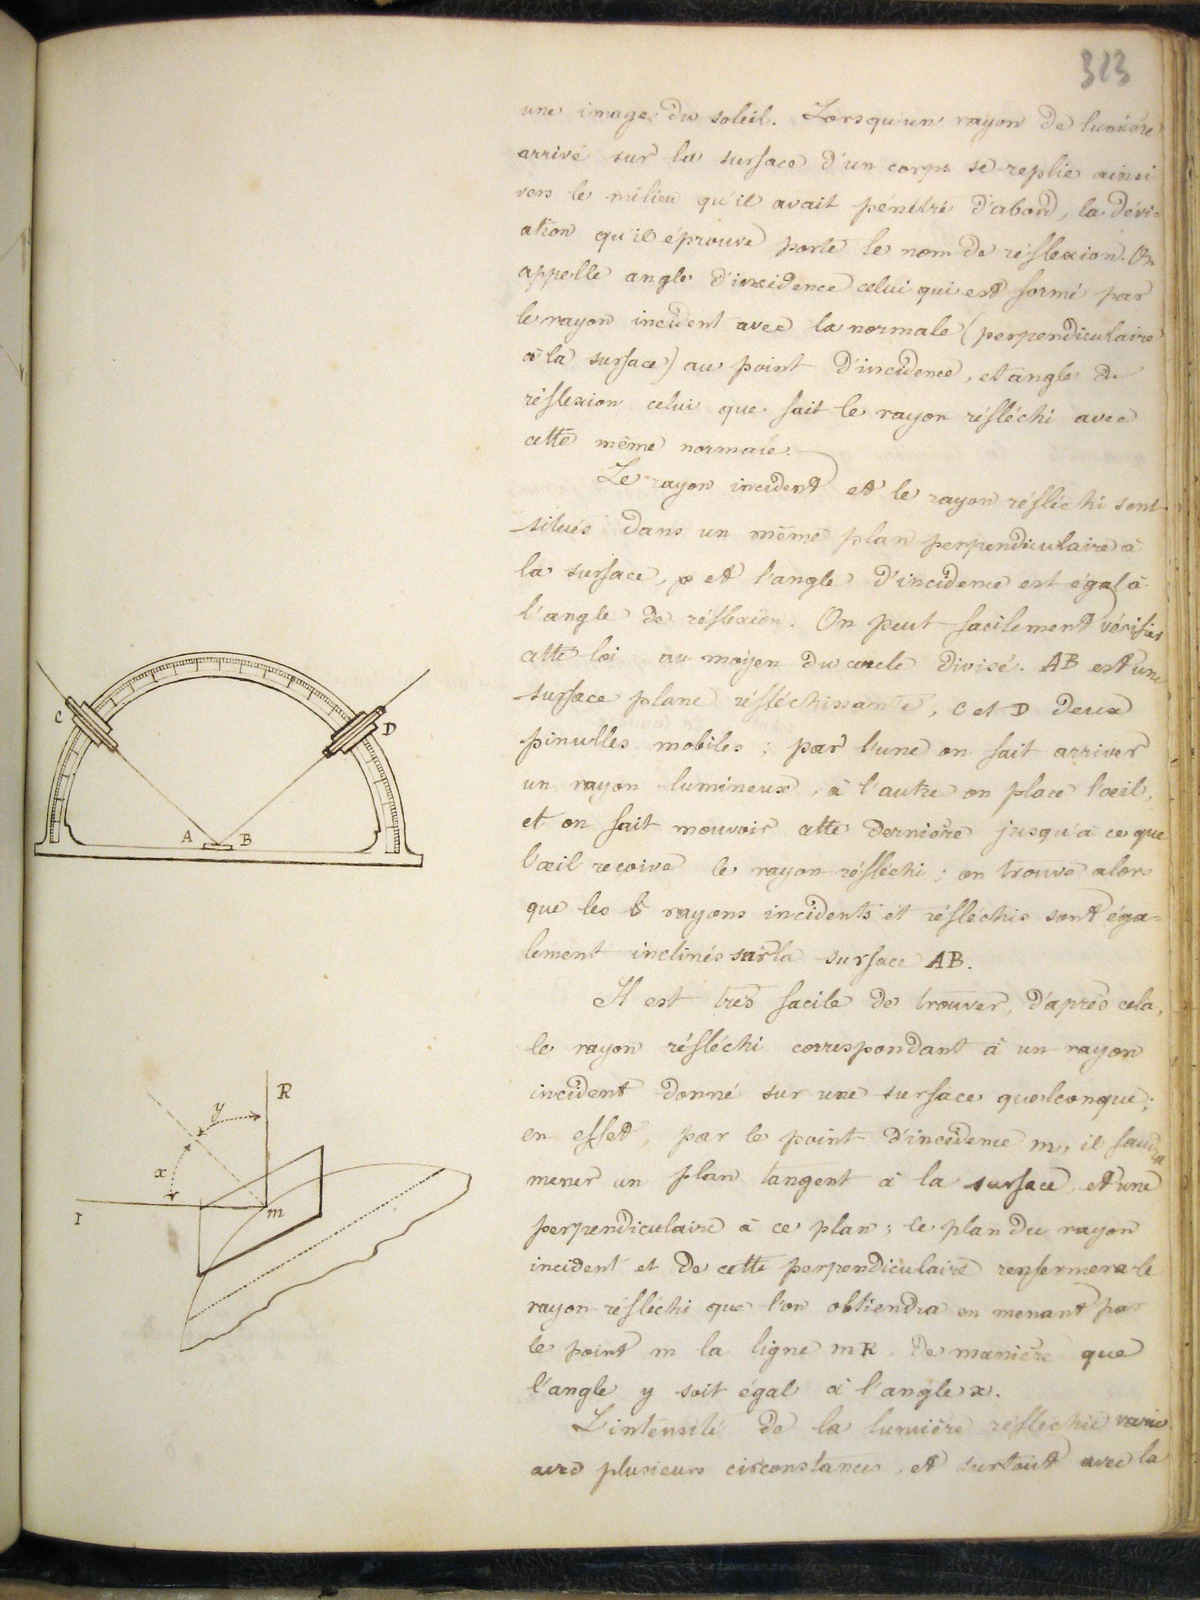 313
une image du soleil. Lorsqu'un rayon de lumière
arrivé sur la surface d'un corps se replie ainsi
vers le milieu qu'il avait pénétré d'abord, la dévi-
ation qu'il éprouve porte le nom de réflexion. On
appelle angle d'incidence celui qui est formé par
le rayon incident avec la normale (perpendiculaire
à la surface) au point d'incidence, et angle de
réflexion celui que fait le rayon réfléchi avec
cette même normale.
Le rayon incident et le rayon réfléchi sont
situés dans un même plan perpendiculaire à
la surface, et l'angle d'incidence est égal à
l'angle de réflexion. On peut facilement vérifier
cette loi au moyen du cercle divisé. AB est une
surface plane réfléchissante, C et D deux
pinulles mobiles ; par l'une on fait arriver
un rayon lumineux, à l'autre on place l'œil,
et on fait mouvoir cette dernière jusqu'à ce que
l'œil reçoive le rayon réfléchi ; on trouve alors
que les rayons incidents et réfléchis sont éga-
lement inclinés sur la surface AB.
Il est très facile de trouver, d'après cela,
le rayon réfléchi correspondant à un rayon
incident donné sur une surface quelconque ;
en effet, par le point d'incidence m, il faudra
mener un plan tangent à la surface et une
perpendiculaire à ce plan ; le plan du rayon
incident et de cette perpendiculaire renfermera le
rayon réfléchi que l'on obtiendra en menant par
le point m la ligne mR de manière que
l'angle y soit égal à l'angle x.
L'intensité de la lumière réfléchie varie
avec plusieurs circonstances, et surtout avec la
C
D
A
B
R
y
x
I
m